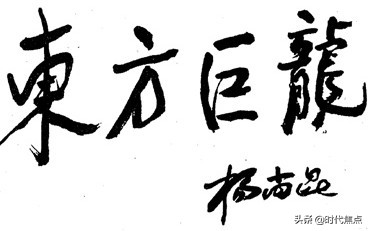 東方巨龍
楊尚昆
头条 @时代焦点